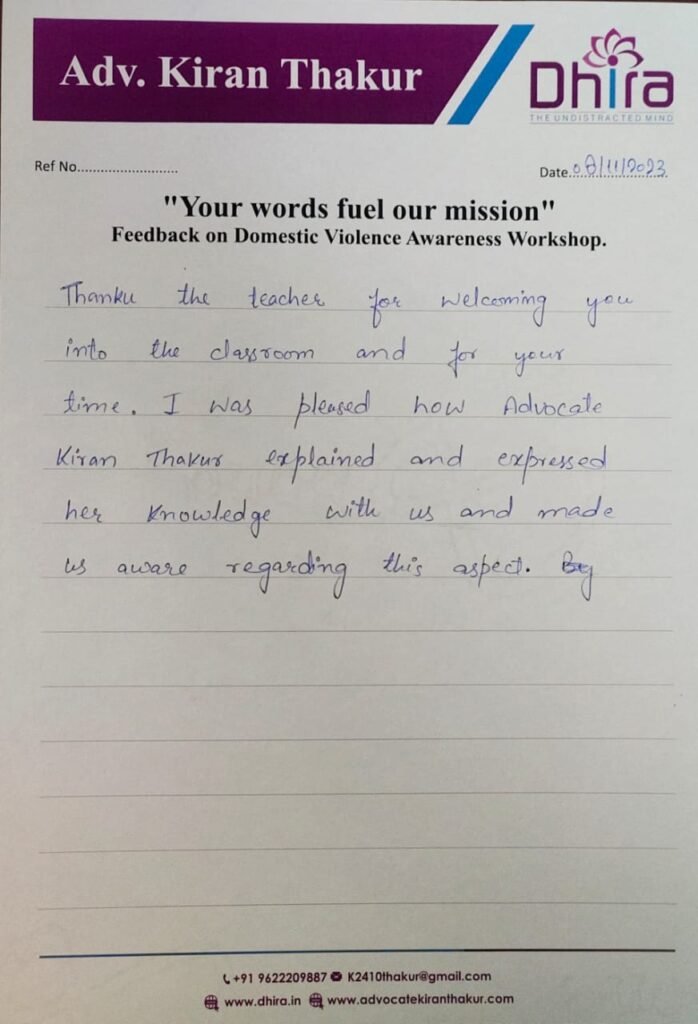 Adv. Kiran Thakur
Dhira
THE UNDISTRACTED MIND
Ref No..........................
Date.08/11/2023
"Your words fuel our mission"
Feedback on Domestic Violence Awareness Workshop.
Thanku the teacher for welcoming you
into the classroom and for your
time. I was pleased how Advocate
Kiran Thakur explained and expressed
her knowledge with us and made
us aware regarding this aspect.
+91 9622209887 K2410thakur@gmail.com
www.dhira.in www.advocatekiranthakur.com